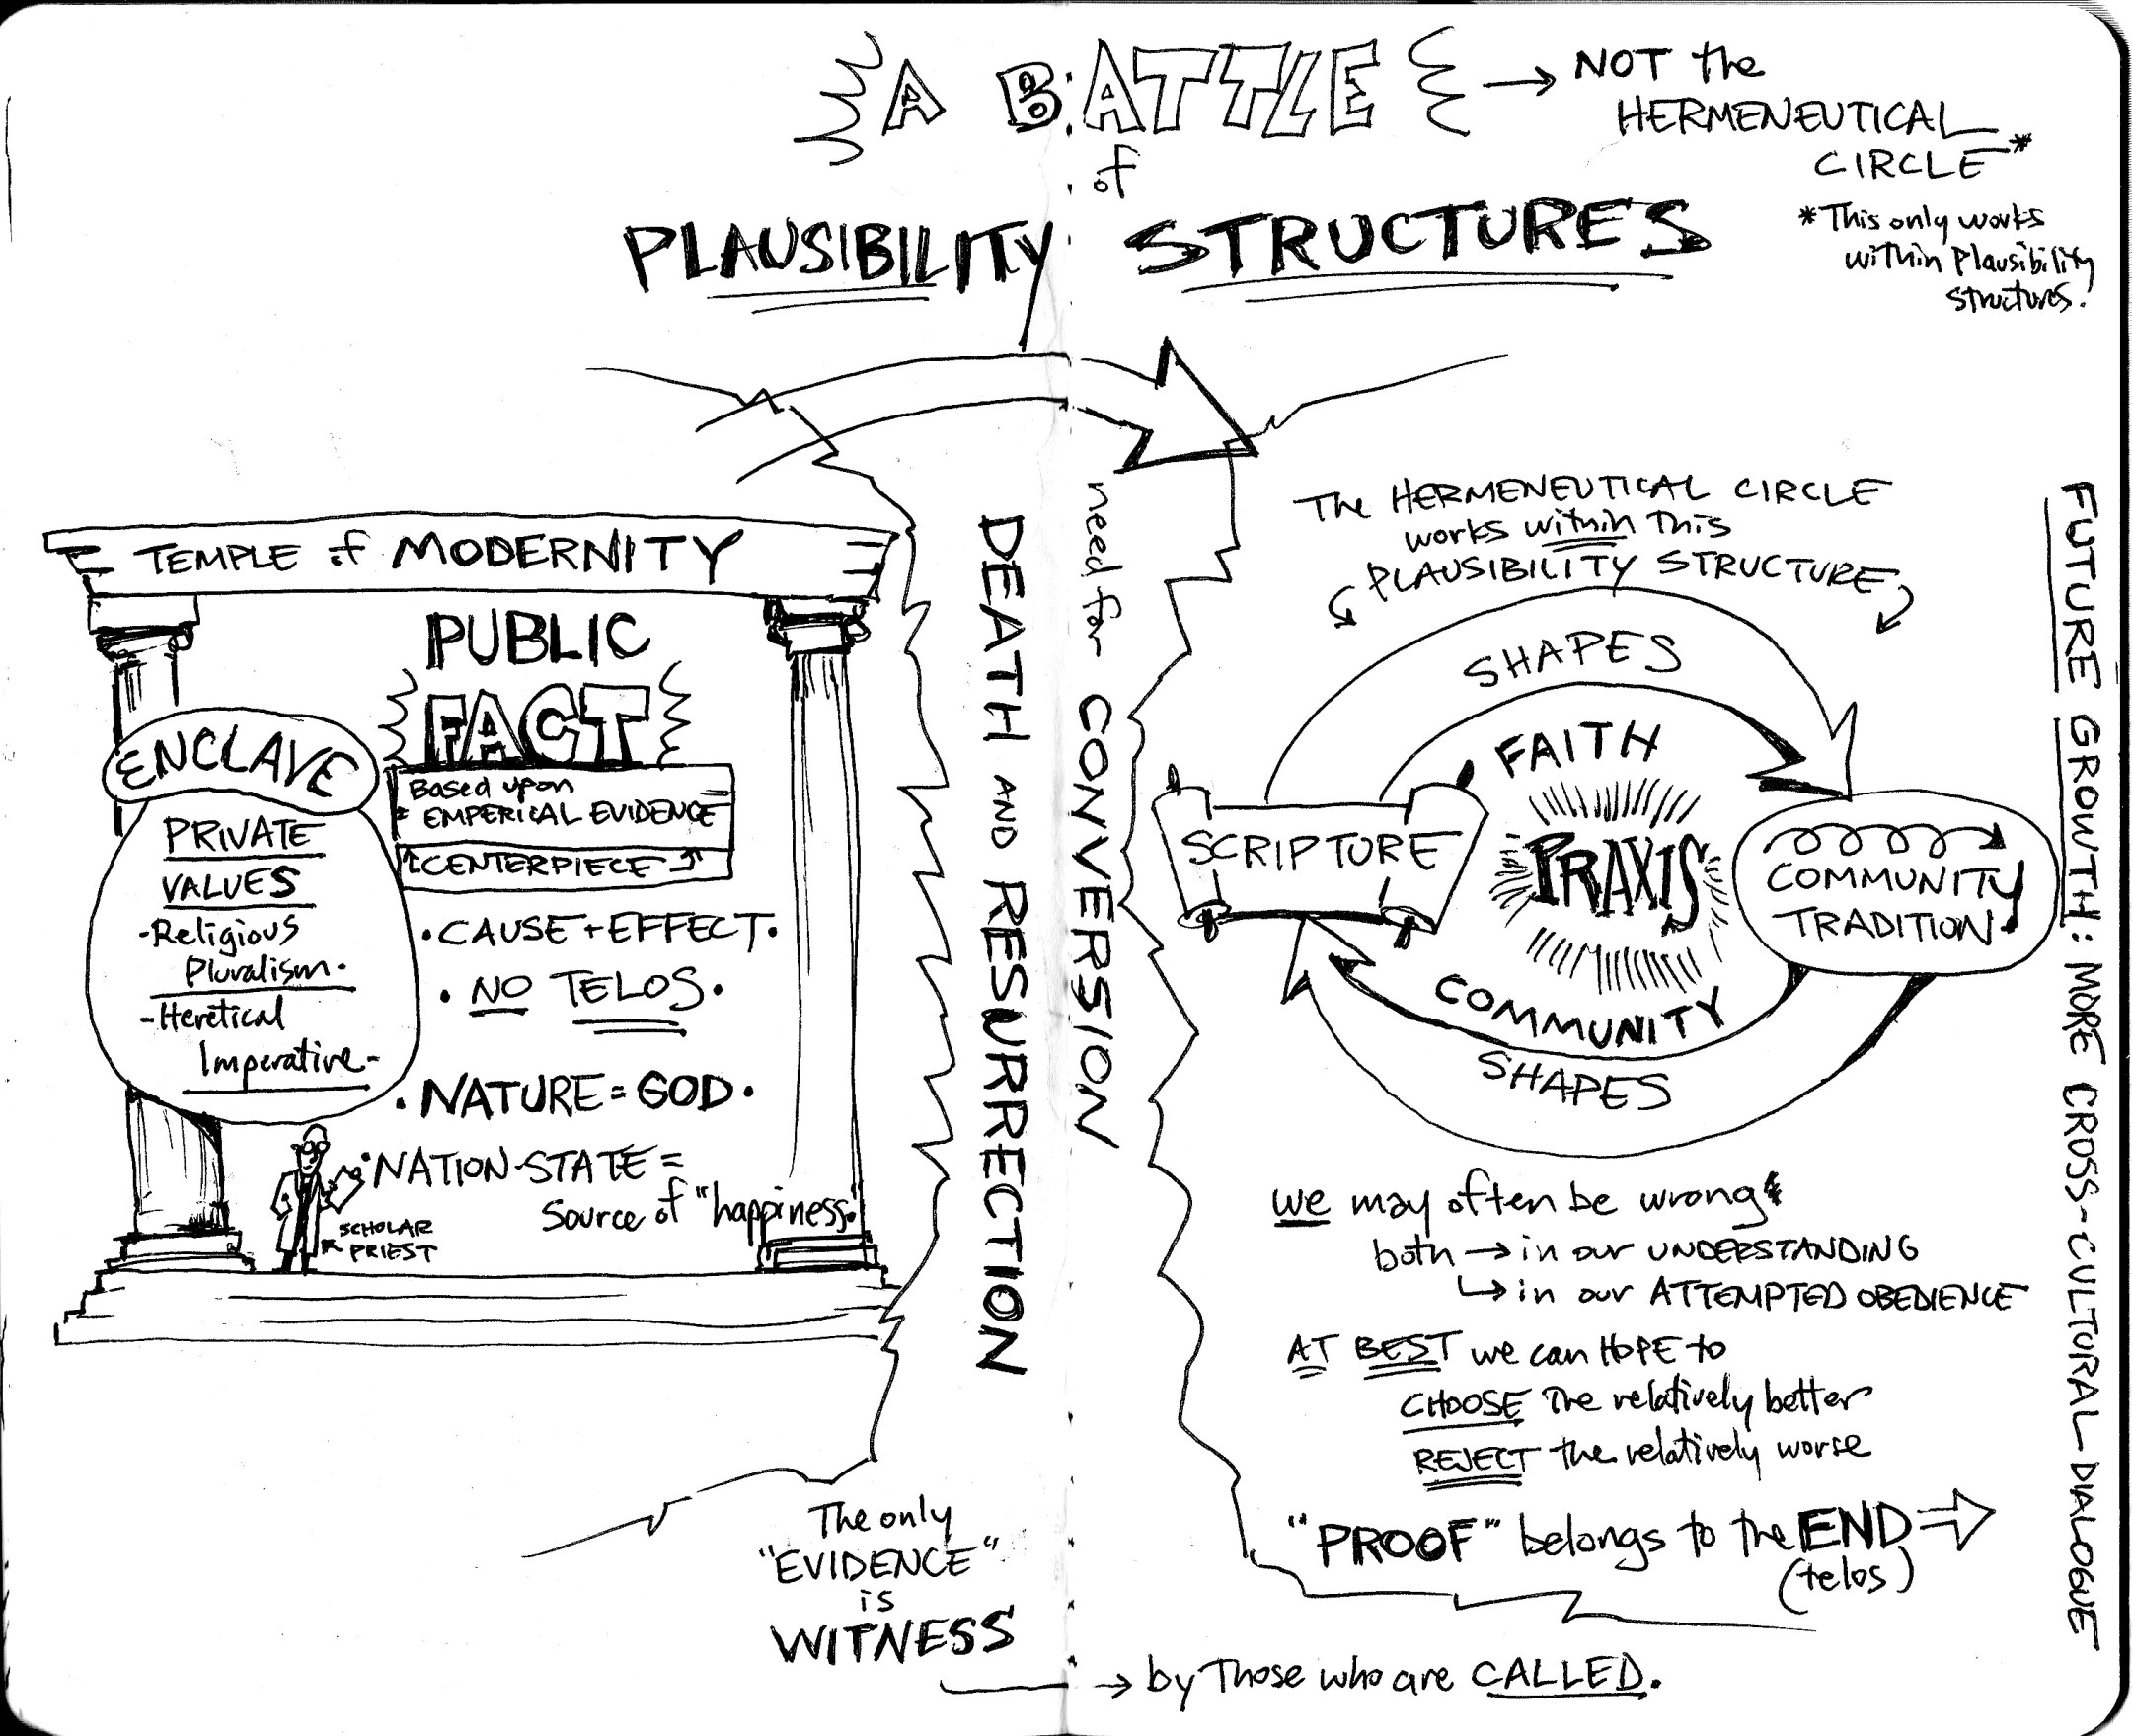 A BATTLE
of
PLAUSIBILITY STRUCTURES
→ NOT the
HERMENEUTICAL
CIRCLE*
*This only works
within plausibility
structures.
TEMPLE of MODERNITY
PUBLIC
FACT
Based upon
EMPERICAL EVIDENCE
↑CENTERPIECE↑
• CAUSE + EFFECT •
• NO TELOS •
• NATURE = GOD •
• NATION-STATE =
Source of "happiness."
ENCLAVE
PRIVATE
VALUES
-Religious
Pluralism.
-Heretical
Imperative-
SCHOLAR
PRIEST
DEATH AND RESURRECTION
need for CONVERSION
The HERMENEUTICAL CIRCLE
works within this
PLAUSIBILITY STRUCTURE
SHAPES
FAITH
SCRIPTURE
PRAXIS
COMMUNITY
TRADITION
COMMUNITY
SHAPES
we may often be wrong
both → in our UNDERSTANDING
↳ in our ATTEMPTED OBEDIENCE
AT BEST we can HOPE to
CHOOSE the relatively better
REJECT the relatively worse
"PROOF" belongs to the END ⇒
(telos)
The only
"EVIDENCE"
is
WITNESS
→ by Those who are CALLED.
FUTURE GROWTH: MORE CROSS-CULTURAL DIALOGUE